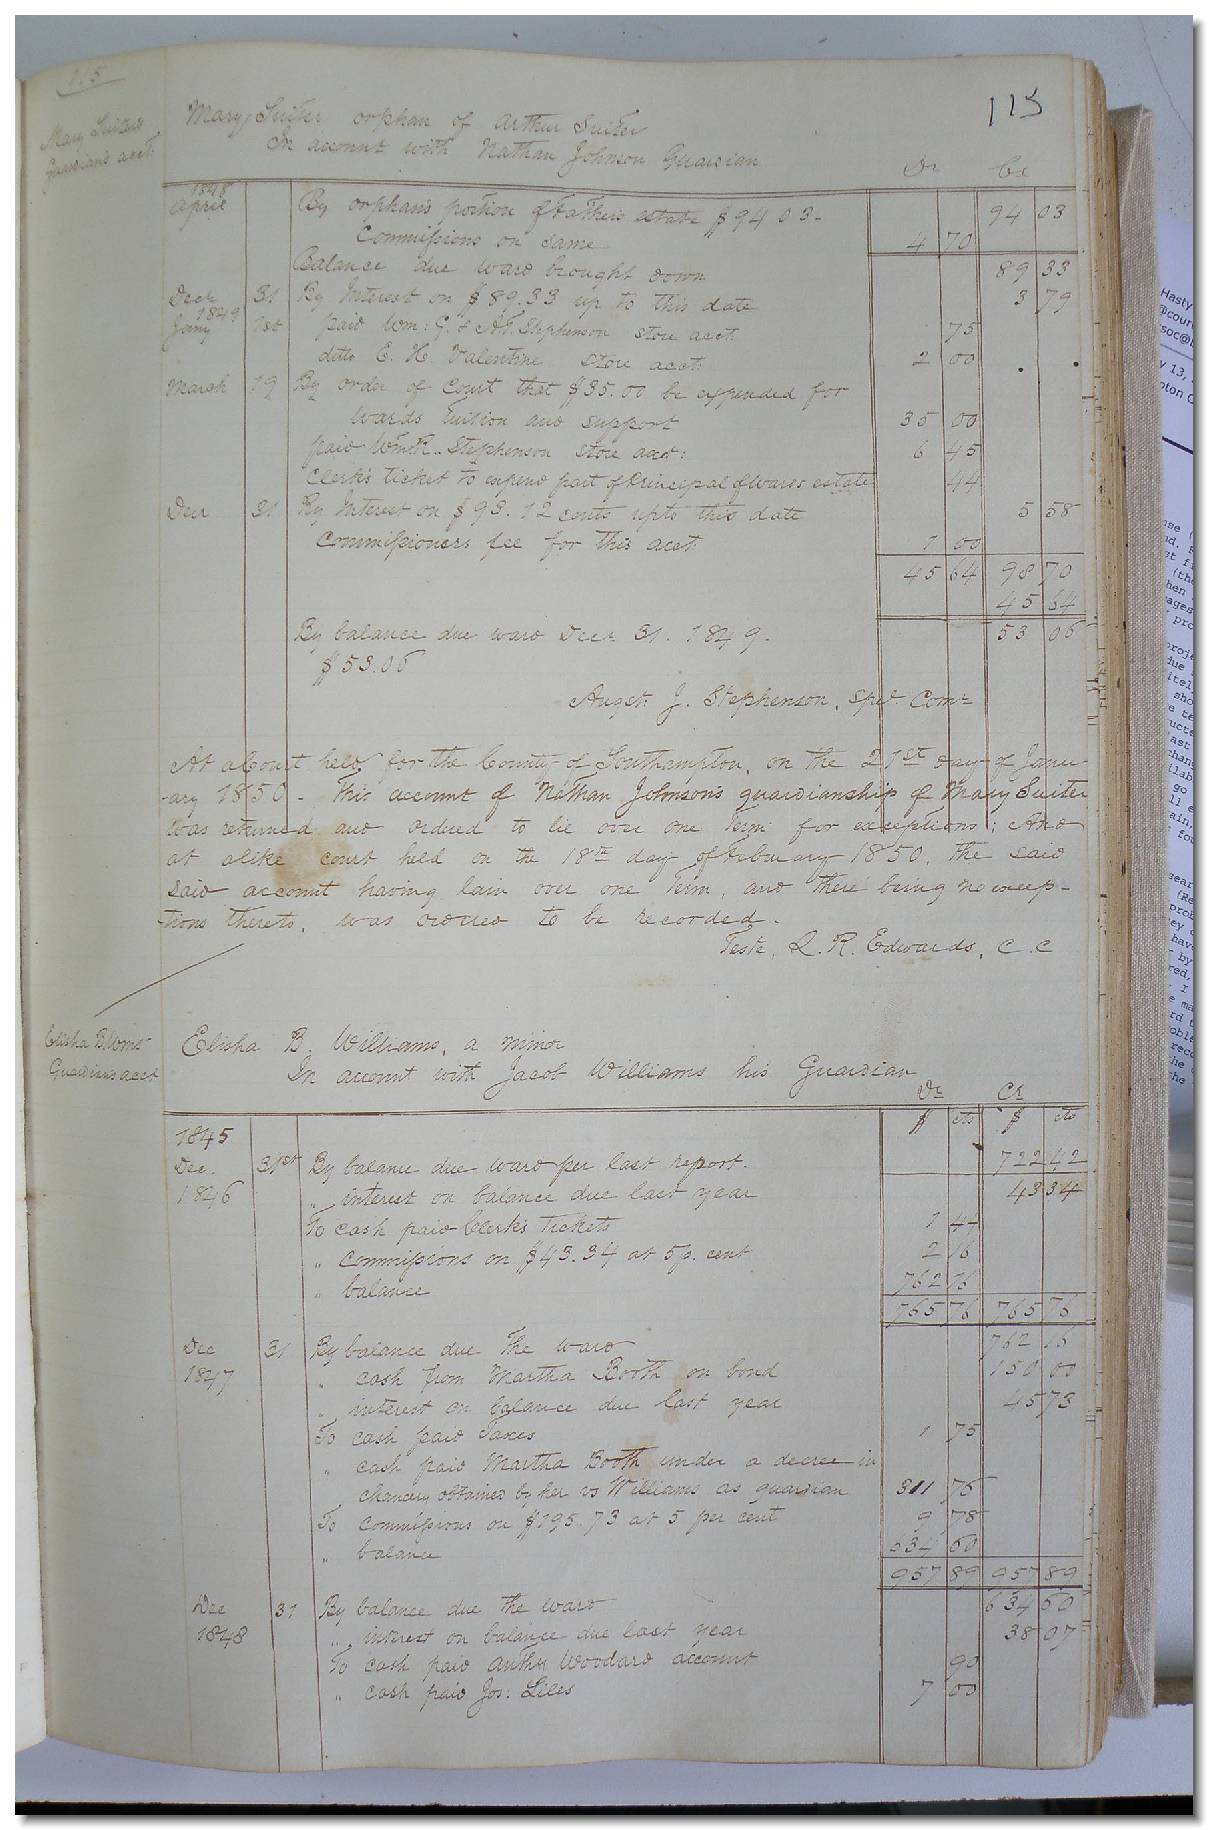 115
115
Mary Suiters
Guardians acct.
Mary Suiter orphan of Arthur Suiter
In account with Nathan Johnson Guardian
Dr Cr
1848
April By orphan's portion of Father's estate $94 03- 94 03
Commissions on same 4 70
Balance due ward brought down 89 33
Decr 31 By Interest on $89.33 up to this date 3 79
1849
Jany 1st paid Wm: G. & A.J. Stephenson store acct. 75
ditto E. H. Valentine store acct. 2 00
March 19 By order of Court that $35.00 be expended for
wards Tuition and support 35 00
paid Wm R. Stephenson store acct: 6 45
Clerk's ticket to expend part of Principal of wards estate 44
Decr 31 By Interest on $93.12 cents upto this date 5 58
Commissioners fee for this acct 1 00
45 64 98 70
45 64
By balance due ward Decr 31. 1849. 53 06
$53.06
August. J. Stephenson, Spcl. Comr
At a Court held for the County of Southampton, on the 21st day of Janu-
-ary 1850 - This account of Nathan Johnson's guardianship of Mary Suiter
was returned and ordered to lie over one Term for exceptions; And
at alike court held on the 18th day of February 1850, the said
said account having lain over one Term, and there being no excep-
-tions thereto, was ordered to be recorded.
Teste, L. R. Edwards, C. C
Elisha B. Wms
Guardians acct
Elisha B. Williams, a minor
In account with Jacob Williams his Guardian
Dr Cr
$ cts $ cts
1845
Dec. 31st By balance due ward per last report. 722 42
1846 " interest on balance due last year 43 34
To cash paid Clerk's Tickets 1 44
" commissions on $43.34 at 5 p. cent 2 16
" balance 762 16
765 76 765 76
Dec 31 By balance due The ward 762 16
1847 " cash from Martha Booth on bond 150 00
" interest on balance due last year 45 73
To cash paid Taxes 1 75
" cash paid Martha Booth under a decree in
chancery obtained by her vs Williams as guardian 311 76
To commissions on $195.73 at 5 per cent 9 78
" balance 634 60
957 89 957 89
Dec 31 By balance due the ward 634 60
1848 " interest on balance due last year 38 07
To cash paid Woodard account 90
" cash paid Jos: Liles 7 00